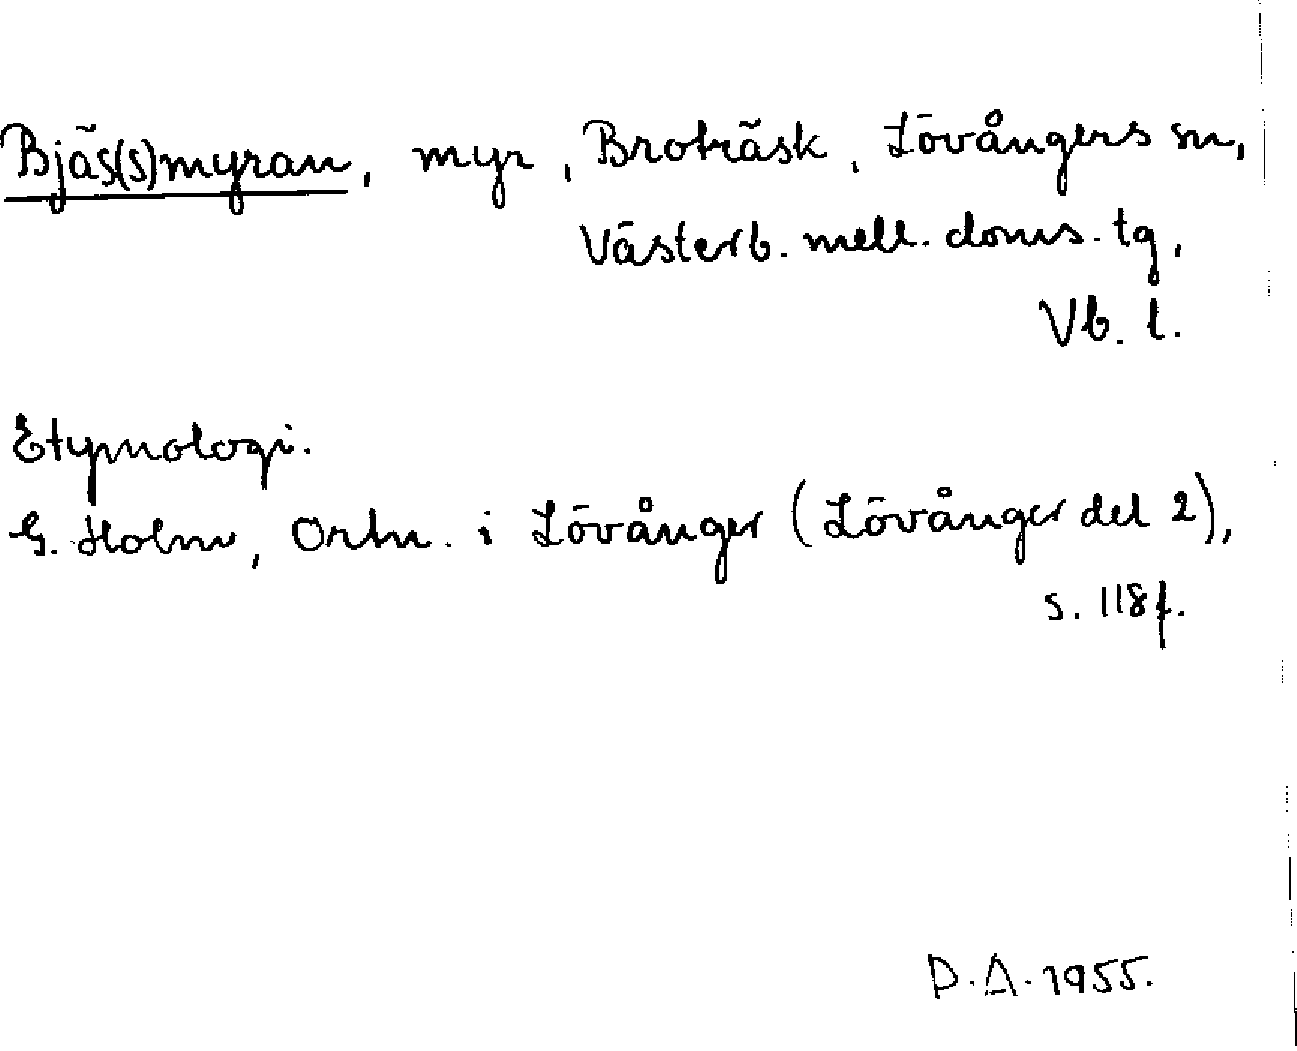 Bjäs(s)myran, myr, Broträsk, Lövångers sn,
Västerb. mell. doms. tg,
Vb. l.
Etymologi.
G. Holm, Ortn. i Lövånger (Lövånger del 2),
s. 118 f.
D. A. 1955.